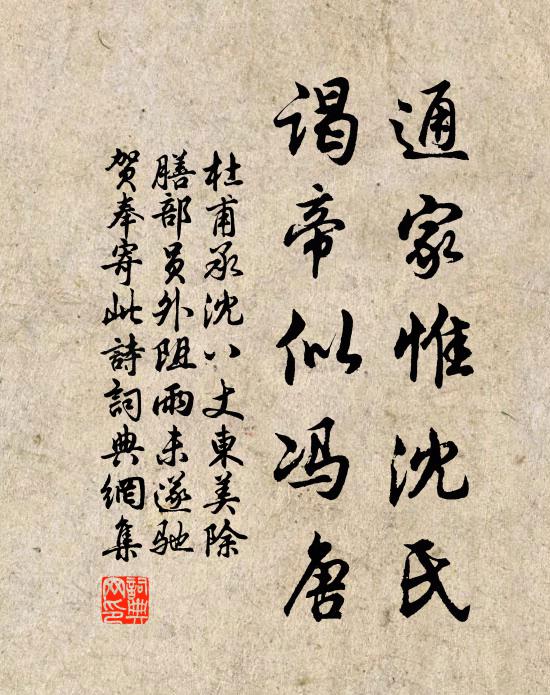 通家惟沈氏
谒帝似冯唐
杜甫承沈八丈東美除
膳部員外阻雨未遂馳
贺奉寄此詩詞典網集
詞典网印